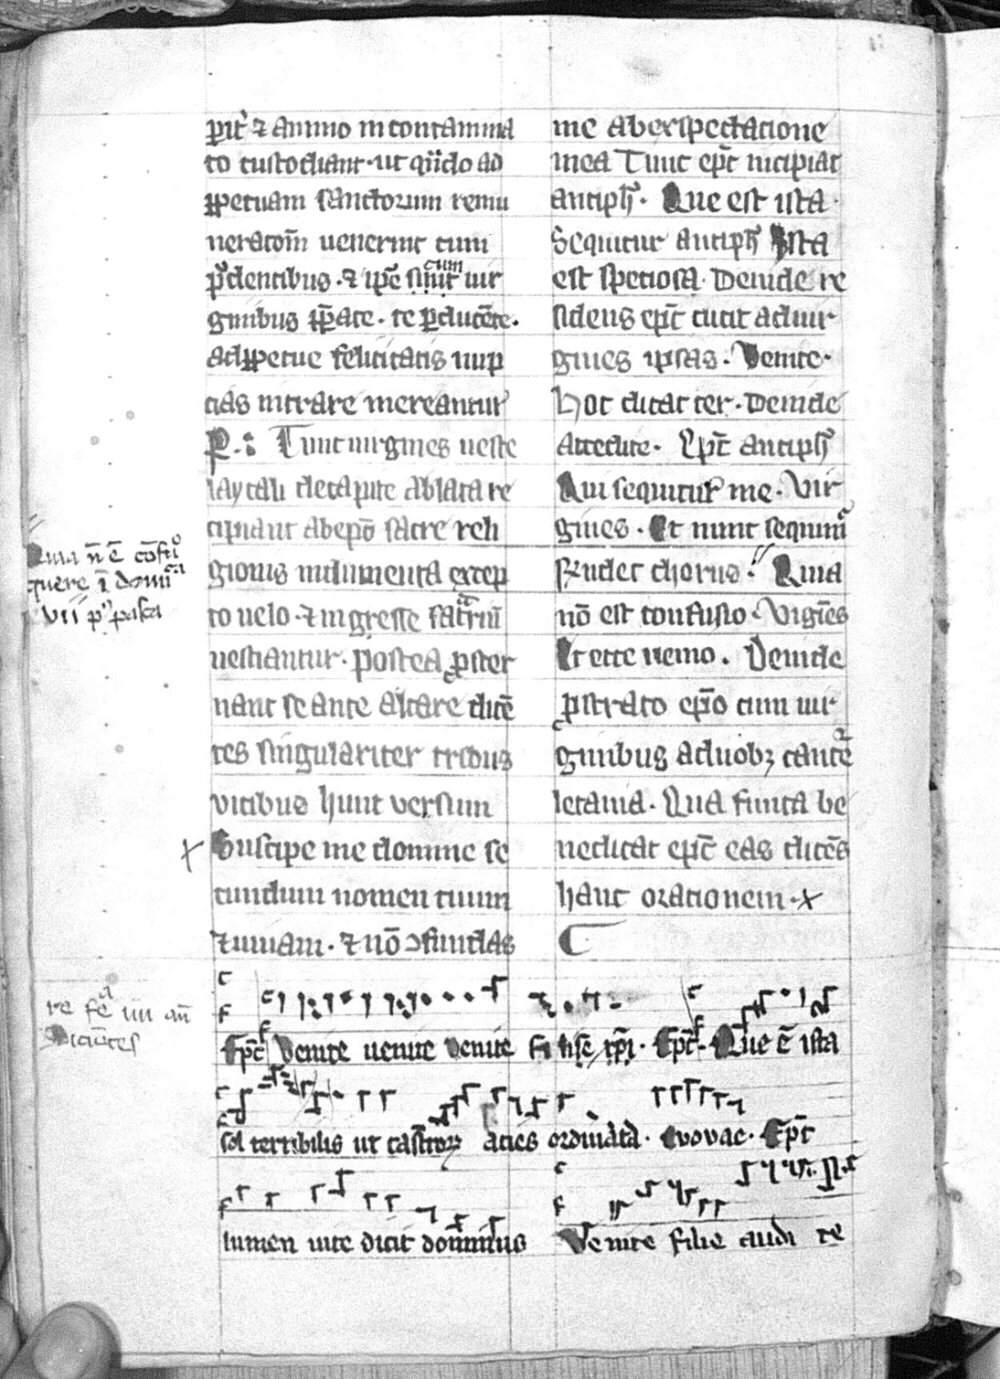 pit᷑ ⁊ animo incontamina
to custodiant · ut qn̄do ad
ꝑpetuam sanctorum remu
neratōm̄ uenerint cum
prudentibus · ⁊ ip̄e sint cum uir
ginibus p̄pate · te ꝑducēte ·
ad ꝑpetue felicitatis nup
cias intrare mereantur
R · : Tunc uirgines ueste
laycali de capite ablata re
cipiant ab ep̄o sacre reli
gionis indumenta excep
to uelo · ⁊ ingresse sacrariū
uestiantur · postea ꝓster
nant se ante altare dicē
tes singulariter tribus
uicibus hunc versum
Suscipe me domine se
cundum nomen tuum
⁊ uiuam · ⁊ nō ↄfundas
me ab exspectacione
mea Tunc ep̄c incipiat
antiph̄ · Que est ista ·
Sequitur antiph̄ Ista
est speciosa · Deinde re
sidens ep̄c dicit ad uir
gines ipsas · Venite ·
hoc dicat ter · Deinde
Accedite · Ep̄c antiph̄
Qui sequitur me · Vir
gines · Et nunc sequimur
Rn̄det chorus · Quia
nō est confusio · Virgīes
Et ecce uenio . Deinde
ꝓstrato ep̄o cum uir
ginibus a duobꝫ cantēr
letania · Qua finita be
nedicat ep̄c eas dicēs
hanc orationem · x
Quia n̄ ē cōfusio
quere ī domīca
VII pꝰ pasca
re fe iiii an̄
Dicātes
Ep̄c Venite uenite venite filie xp̄i · Ep̄c · Que ē ista
sol terribilis ut castrorꝝ acies ordinata · evovae · Ep̄c
lumen uite dicit dominus Venite filie audite